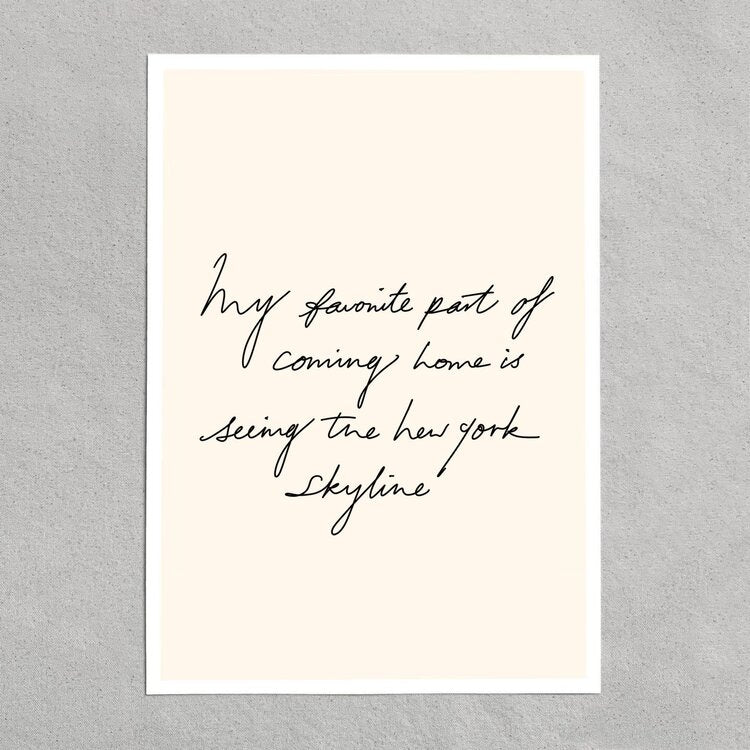 My favorite part of
coming home is
seeing the new york
skyline